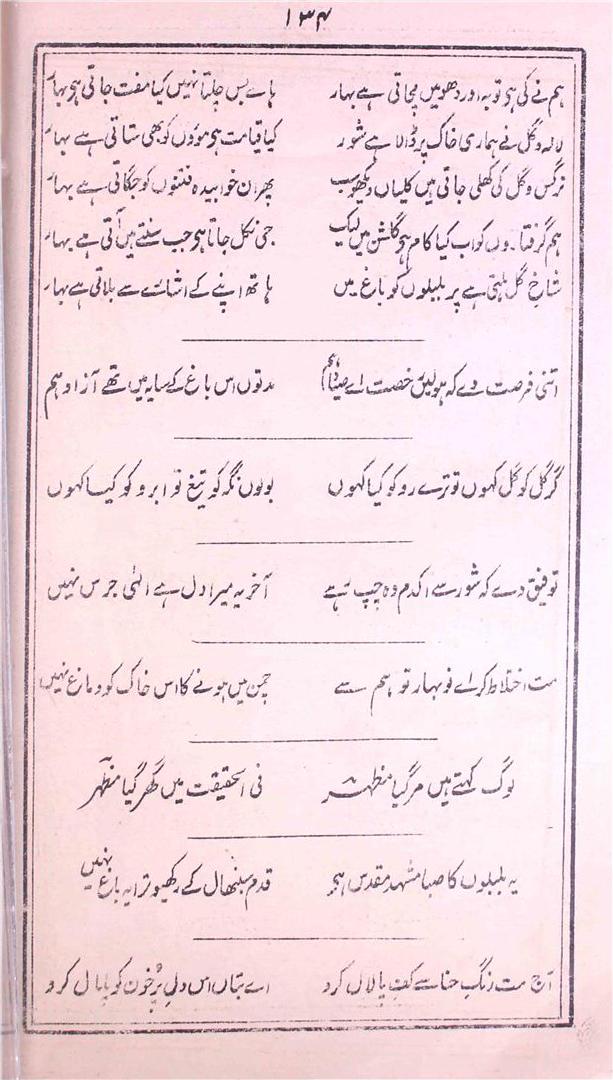 ۱۳۴
ہم نے کی ہو توبہ اور دھومیں مچاتی ہے بہار ہاے بس چلتا نہیں کیا مفت جاتی ہو بہار
لالہ و گل نے ہماری خاک پر ڈالا ہے شور کیا قیامت ہو مووں کو بھی ستاتی ہے بہار
نرگس و گل کی کھلی جاتی ہیں کلیاں دیکھو سب پھر ان خوابیدہ فتنوں کو جگاتی ہے بہار
ہم گرفتاروں کو اب کیا کام ہو گلشن میں لیک جی نکل جاتا ہو جب سنتے ہیں آتی ہے بہار
شاخ گل ہلتی ہے پر بلبلوں کو باغ میں ہاتھ اپنے کے اشارے سے بلاتی ہے بہار
اتنی فرصت دے کہ ہو لیں رخصت اے صیاد ہم مدتوں اس باغ کے سایہ میں تھے آزاد ہم
گر گل کو گل کہوں تو ترے رو کو کیا کہوں بولوں نگہ کو تیغ تو ابرو کو کیا کہوں
توفیق دے کہ شور سے اکدم وہ چپ رہے آخر یہ میرا دل ہے الٰہی جرس نہیں
مت اختلاط کر اے نوبہار تو ہم سے چمن میں ہونے کا اس خاک کو دماغ نہیں
لوگ کہتے ہیں مر گیا مظہر فی الحقیقت میں گھر گیا مظہر
یہ بلبلوں کا صبا مشہد مقدس ہو قدم سنبھال کے رکھیو ترا یہ باغ نہیں
آج مت رنگ حنا سے کف پا لال کرو اے بتاں اس دل پُر خون کو پامال کرو